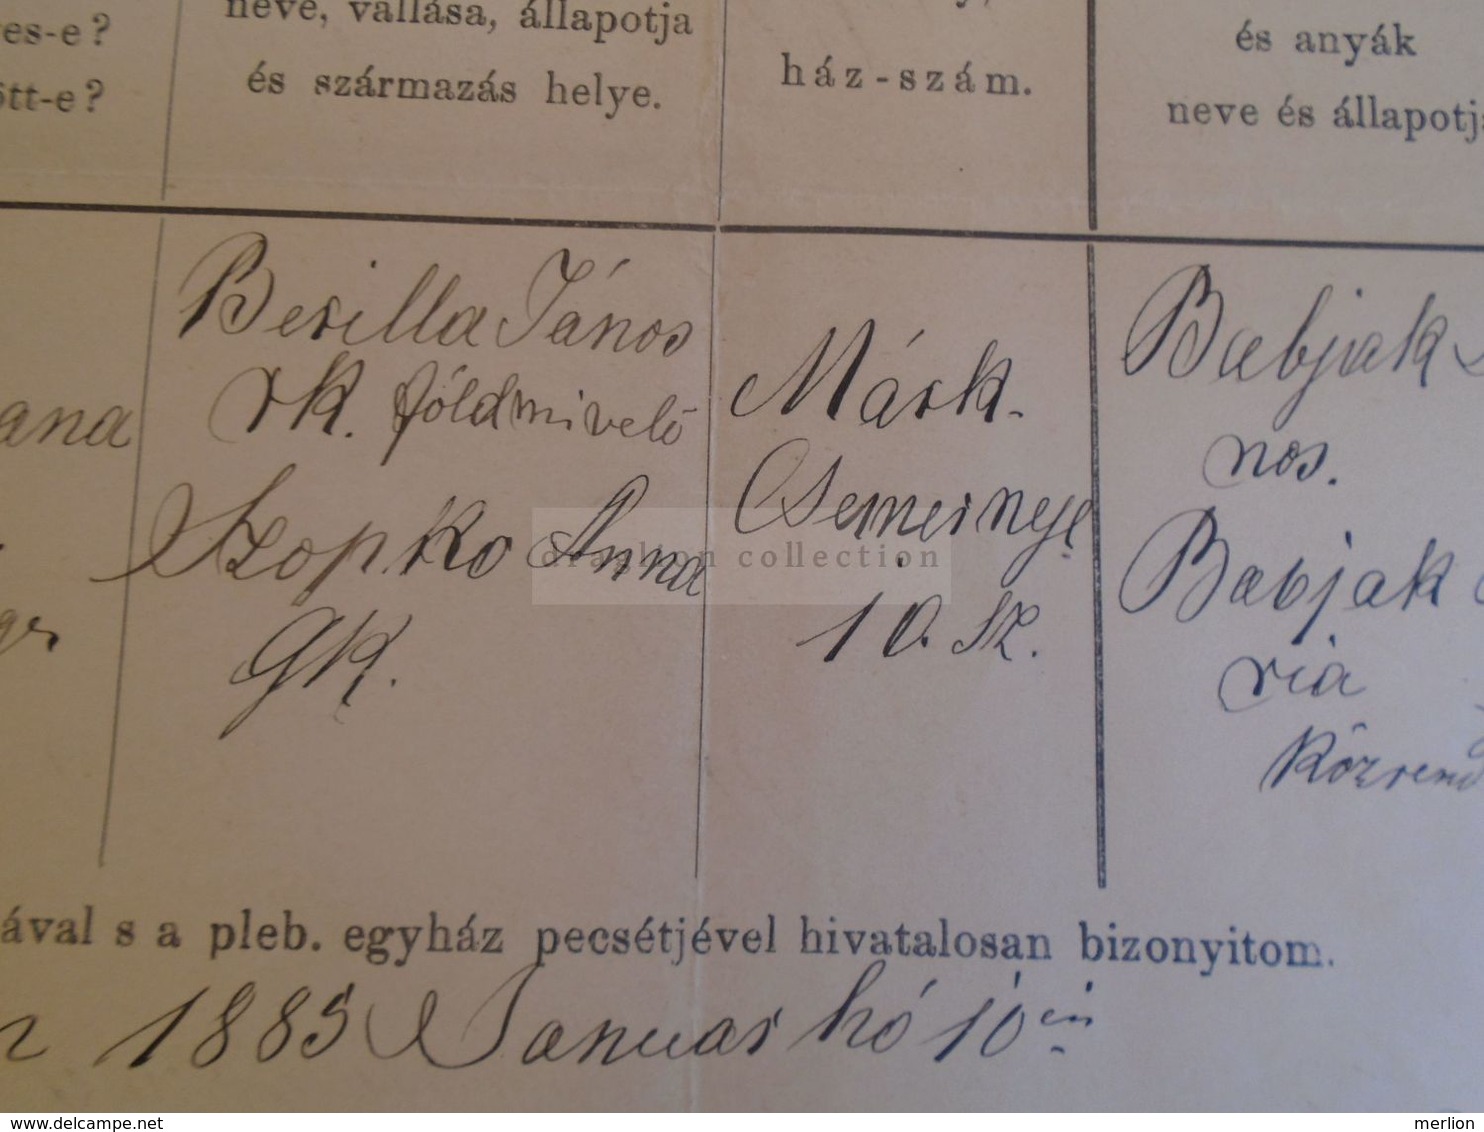 es-e?
ött-e?
neve, vallása, állapotja
és származás helye.
ház-szám.
és anyák
neve és állapotja
ana
Berilla János
rk. földmivelő
Szopko Anna
gk.
Márk-
Csemernye
10. sz.
Babjak
nos.
Babjak
ria
közrend
ával s a pleb. egyház pecsétjével hivatalosan bizonyitom.
1885 Januar hó 10én
drasthon collection
www.delcampe.net
merlion